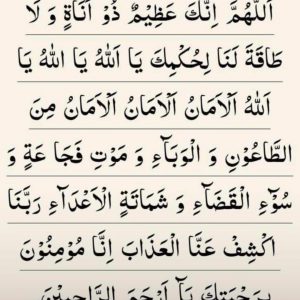 اَللّٰهُمَّ اِنَّكَ عَظِيْمٌ ذُوْ اَنَاةٍ وَ لَا
طَاقَةَ لَنَا لِحُكْمِكَ يَا اَللهُ يَا اَللهُ يَا
اَللهُ اَلْاَمَانُ اَلْاَمَانُ اَلْاَمَانُ مِنَ
الطَّاعُوْنِ وَ الْوَبَآءِ وَ مَوْتِ فَجَا عَةٍ وَ
سُوْٓءِ الْقَضَآءِ وَ شَمَاتَةِ الْاَعْدَآءِ رَبَّنَا
اكْشِفْ عَنَّا الْعَذَابَ اِنَّا مُؤْمِنُوْنَ
بِرَحْمَتِكَ يَآ اَرْحَمَ الرَّاحِمِيْنَ